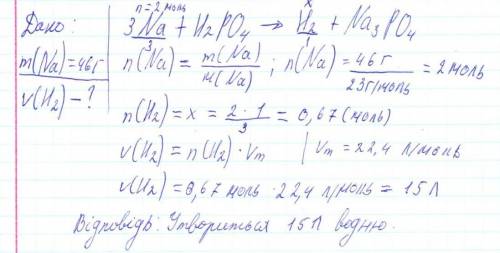 Дано:
m(Na)=46г
V(H₂)-?
n=2моль x
3Na + H₂PO₄ → H₂ + Na₃PO₄
3 1
n(Na) = m(Na)/M(Na) ; n(Na) = 46г/23г/моль = 2моль
n(H₂) = x = 2·1/3 = 0,67(моль)
V(H₂) = n(H₂)·Vm | Vm = 22,4 л/моль
V(H₂) = 0,67 моль · 22,4 л/моль = 15л
Відповідь: Утвориться 15л водню.